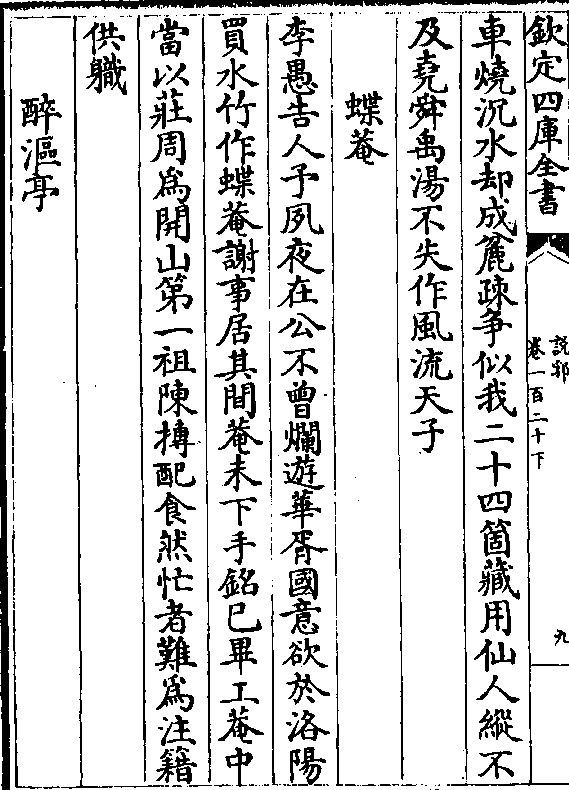 欽定四庫全書
說郛
卷一百二十下
九
車燒沉水却成麄疎争似我二十四箇藏用仙人縱不
及堯舜禹湯不失作風流天子
蝶菴
李愚告人予夙夜在公不曾爛遊華胥國意欲於洛陽
買水竹作蝶菴謝事居其間菴未下手銘已畢工菴中
當以莊周為開山第一祖陳摶配食然忙者難為注籍
供職
醉漚亭